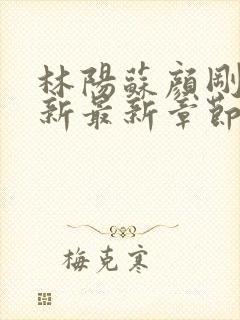 林陽蘇顏剛
新最新章節
梅克寒